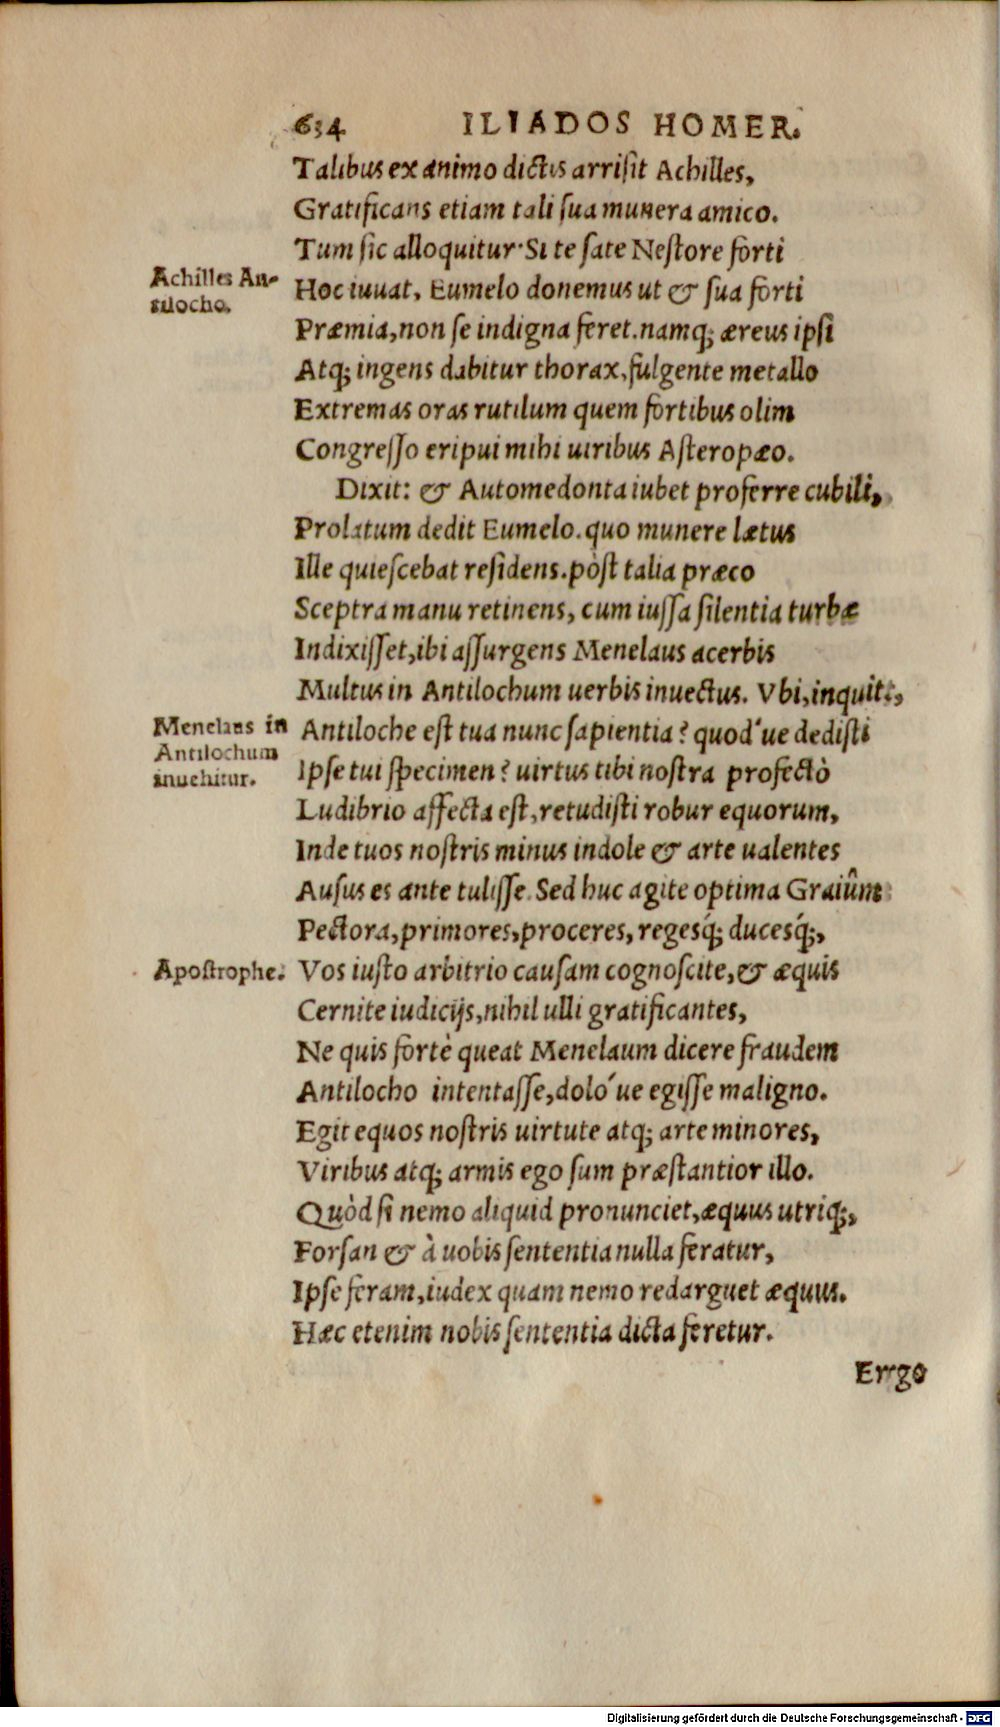 634 ILIADOS HOMER.
Talibus ex animo dictis arrisit Achilles,
Gratificans etiam tali sua munera amico.
Tum sic alloquitur. Si te sate Nestore forti
Achilles An-
tilocho.
Hoc iuuat, Eumelo donemus ut & sua forti
Præmia, non se indigna feret. namq; æreus ipsi
Atq; ingens dabitur thorax, fulgente metallo
Extremas oras rutilum quem fortibus olim
Congresso eripui mihi uiribus Asteropæo.
Dixit: & Automedonta iubet proferre cubili,
Prolatum dedit Eumelo. quo munere lætus
Ille quiescebat residens. pòst talia præco
Sceptra manu retinens, cum iussa silentia turbæ
Indixisset, ibi assurgens Menelaus acerbis
Multus in Antilochum uerbis inuectus. Vbi, inquit,
Menelaus in
Antilochum
inuehitur.
Antiloche est tua nunc sapientia? quod´ue dedisti
Ipse tui specimen? uirtus tibi nostra profectò
Ludibrio affecta est, retudisti robur equorum,
Inde tuos nostris minus indole & arte ualentes
Ausus es ante tulisse. Sed huc agite optima Graiûm
Pectora, primores, proceres, regesq́; ducesq́;,
Apostrophe.
Vos iusto arbitrio causam cognoscite, & æquis
Cernite iudicijs, nihil ulli gratificantes,
Ne quis fortè queat Menelaum dicere fraudem
Antilocho intentasse, dolo´ue egisse maligno.
Egit equos nostris uirtute atq; arte minores,
Viribus atq; armis ego sum præstantior illo.
Quòd si nemo aliquid pronunciet, æquus utriq;,
Forsan & à uobis sententia nulla feratur,
Ipse feram, iudex quam nemo redarguet æquus.
Hæc etenim nobis sententia dicta feretur.
Ergo
Digitalisierung gefördert durch die Deutsche Forschungsgemeinschaft - DFG